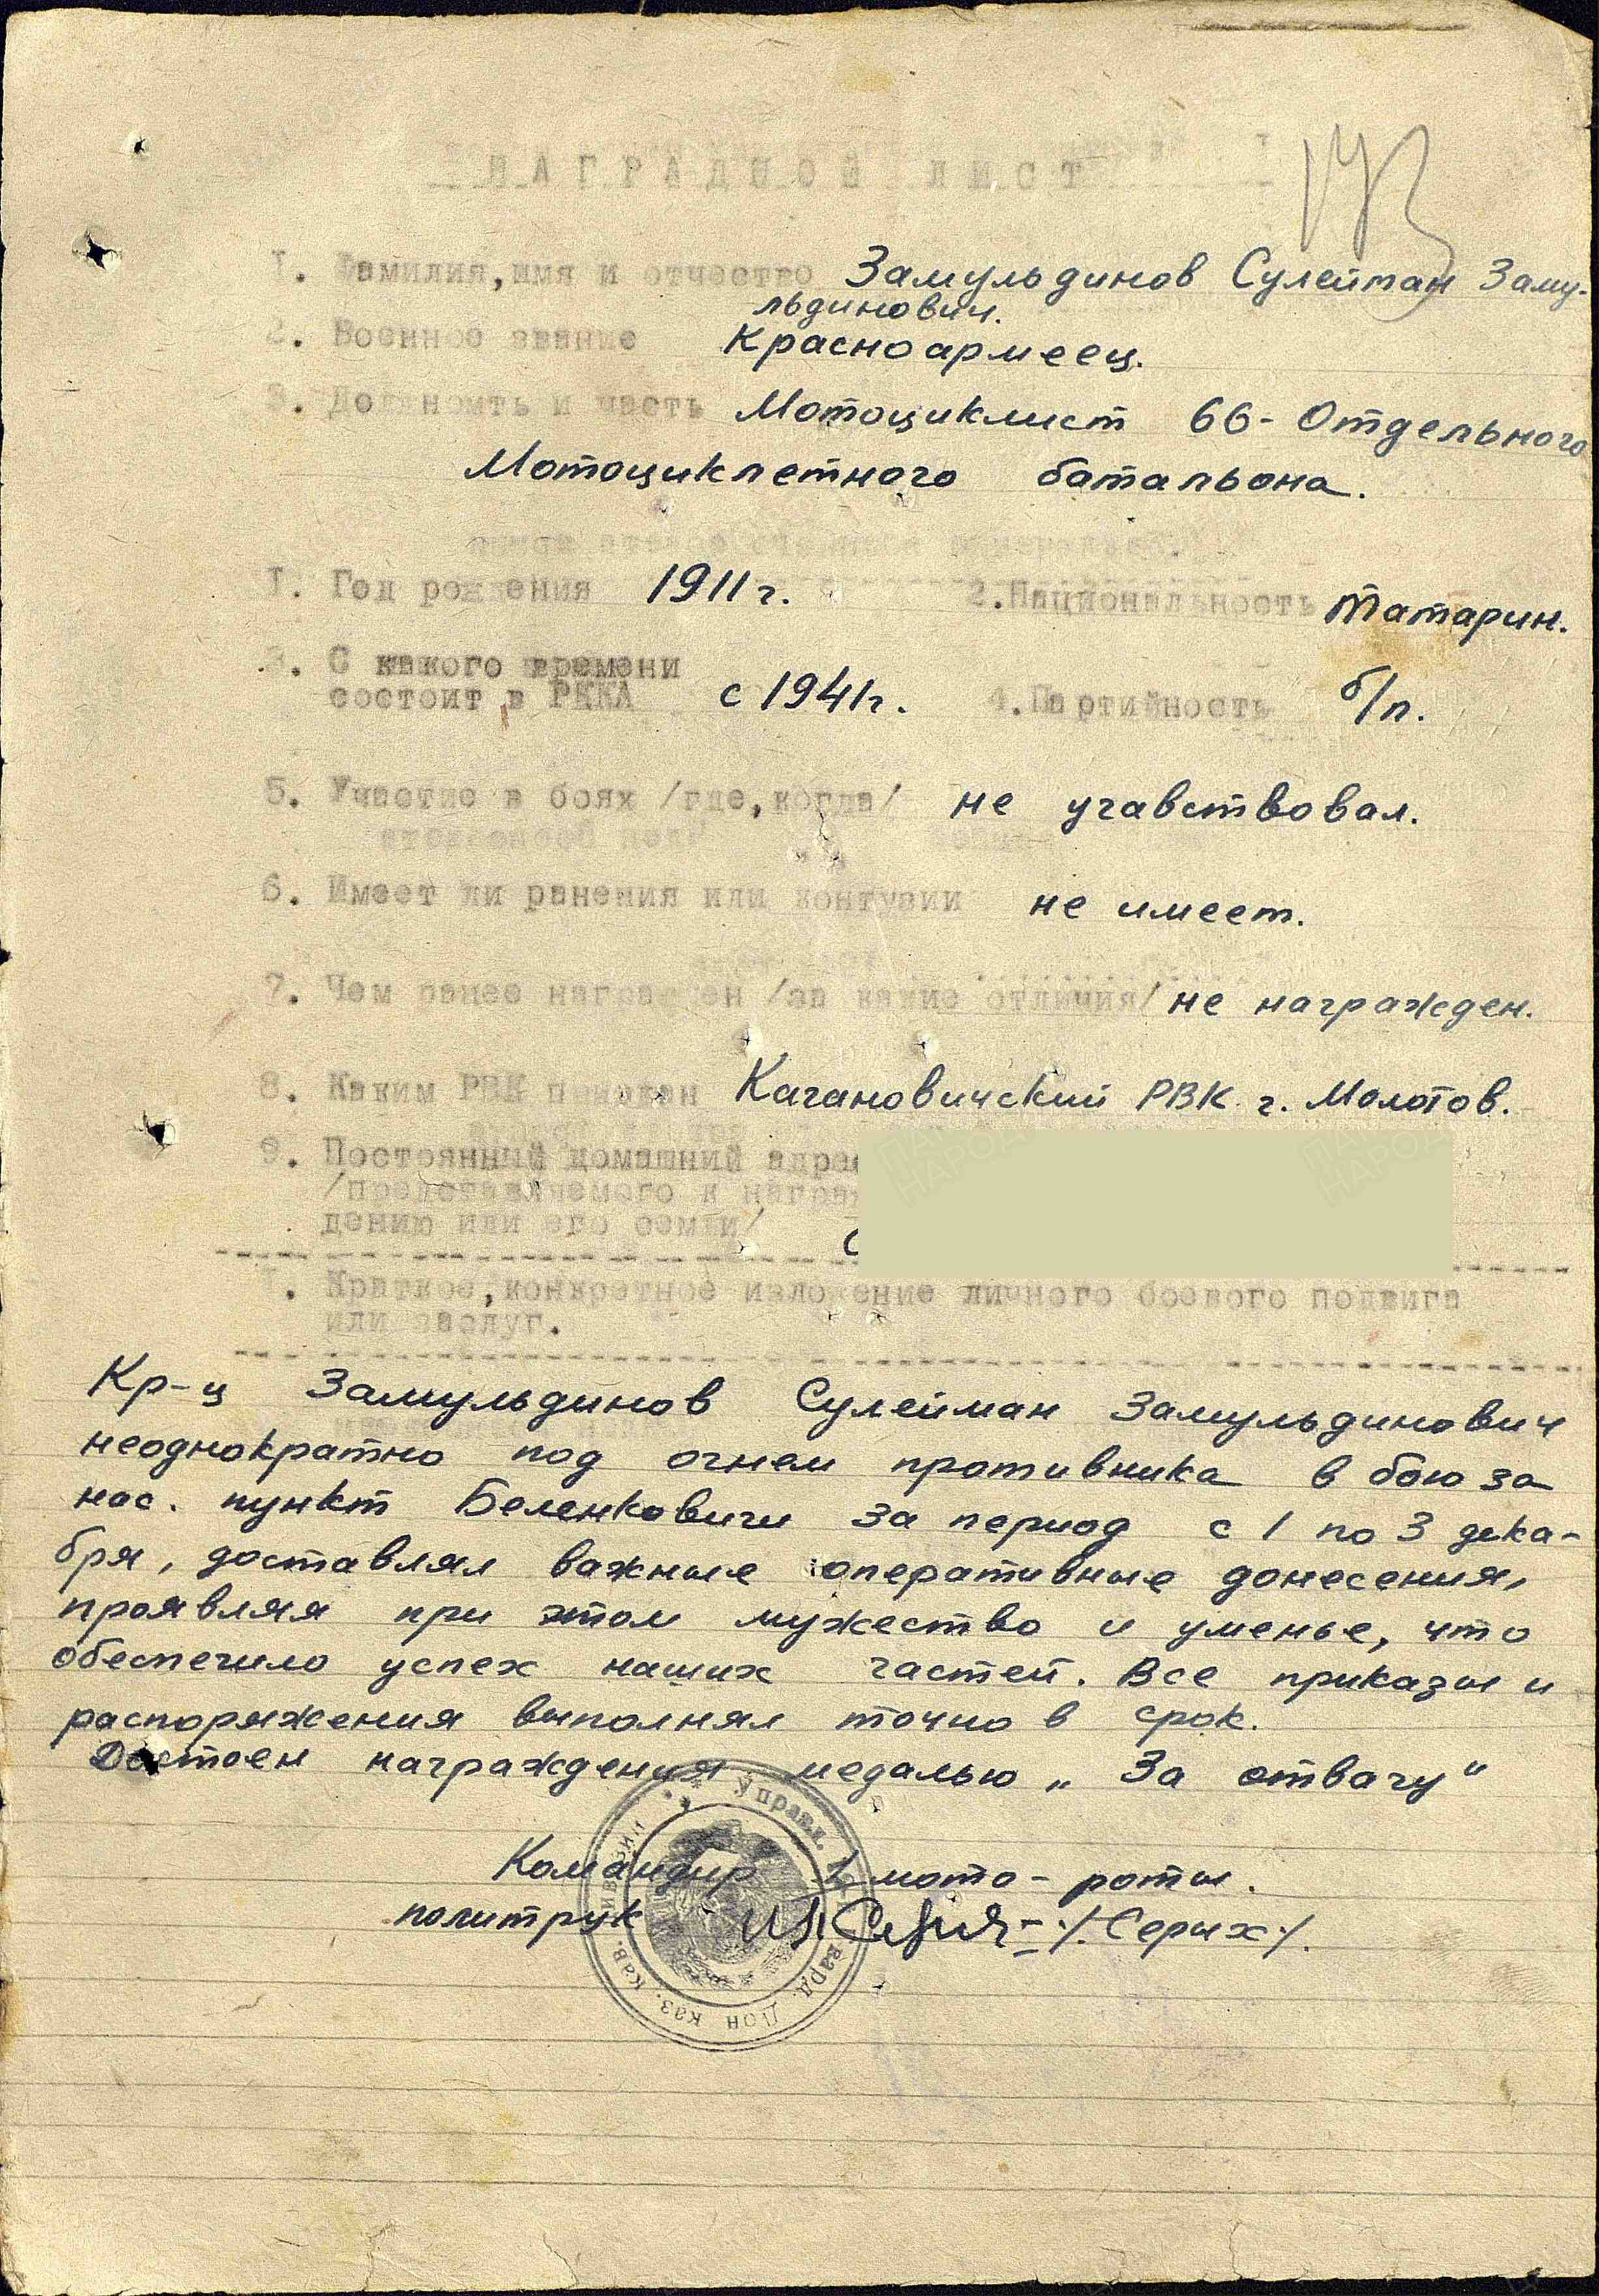 НАГРАДНОЙ ЛИСТ
1. Фамилия, имя и отчество Замульдинов Сулейман Заму-
льдинович.
2. Военное звание Красноармеец.
3. Должномть и часть Мотоциклист 66- Отдельного
Мотоциклетного батальона.
1. Год рождения 1911 г. 2. Национальность Татарин.
3. С какого времени
состоит в РККА с 1941 г. 4. Партийность б/п.
5. Участие в боях /где, когда/ не учавствовал.
6. Имеет ли ранения или контузии не имеет.
7. Чем ранее награжден /за какие отличия/ не награжден.
8. Каким РВК призван Кагановичский РВК г. Молотов.
9. Постоянный домашний адрес
/представляемого к награж
дению или его семьи/
1. Краткое, конкретное изложение личного боевого подвига
или заслуг.
Кр-ц Замульдинов Сулейман Замульдинович
неоднократно под огнем противника в бою за
нас. пункт Беленковичи за период с 1 по 3 дека-
бря, доставлял важные оперативные донесения,
проявляя при этом мужество и уменье, что
обеспечило успех наших частей. Все приказы и
распоряжения выполнял точно в срок.
Достоен награждения медалью „За отвагу"
Командир мото-роты.
политрук /.Серых/.
Управл. гвард. Дон каз. кав. дивизии